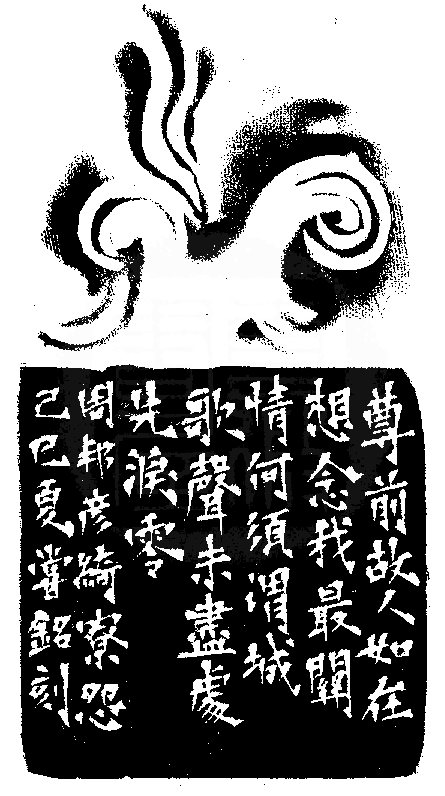 尊前故人如在
想念我最關
情何須渭城
歌聲未盡處
先淚零
周邦彥綺寮怨
己巳夏嘗銘刻